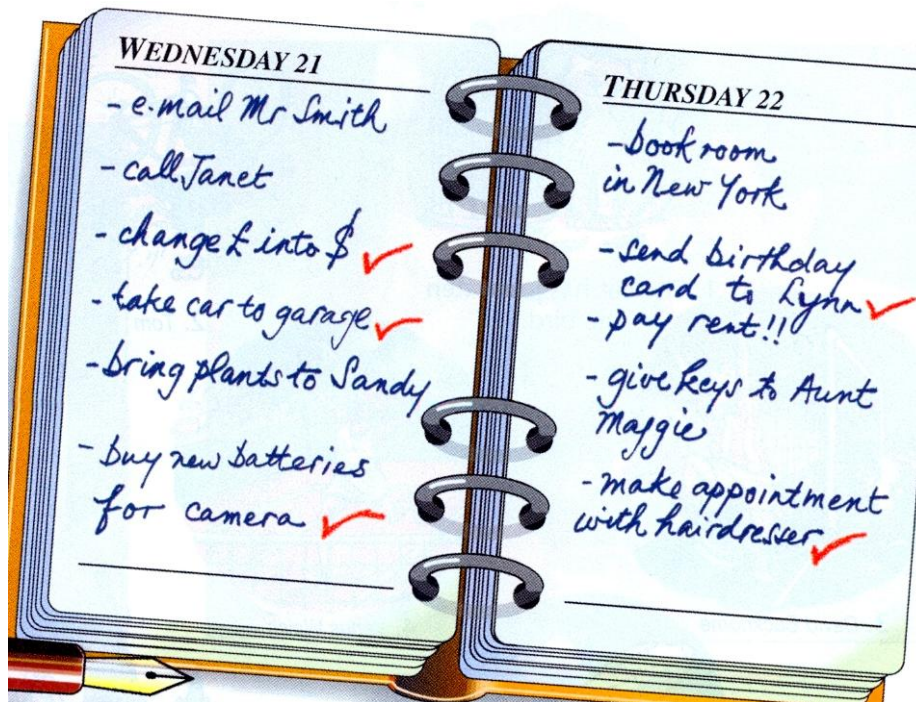 WEDNESDAY 21
- e-mail Mr Smith
- call Janet
- change £ into $
- take car to garage
- bring plants to Sandy
- buy new batteries
for camera
THURSDAY 22
- book room
in New York
- send birthday
card to Lynn
- pay rent!!
- give keys to Aunt
Maggie
- make appointment
with hairdresser